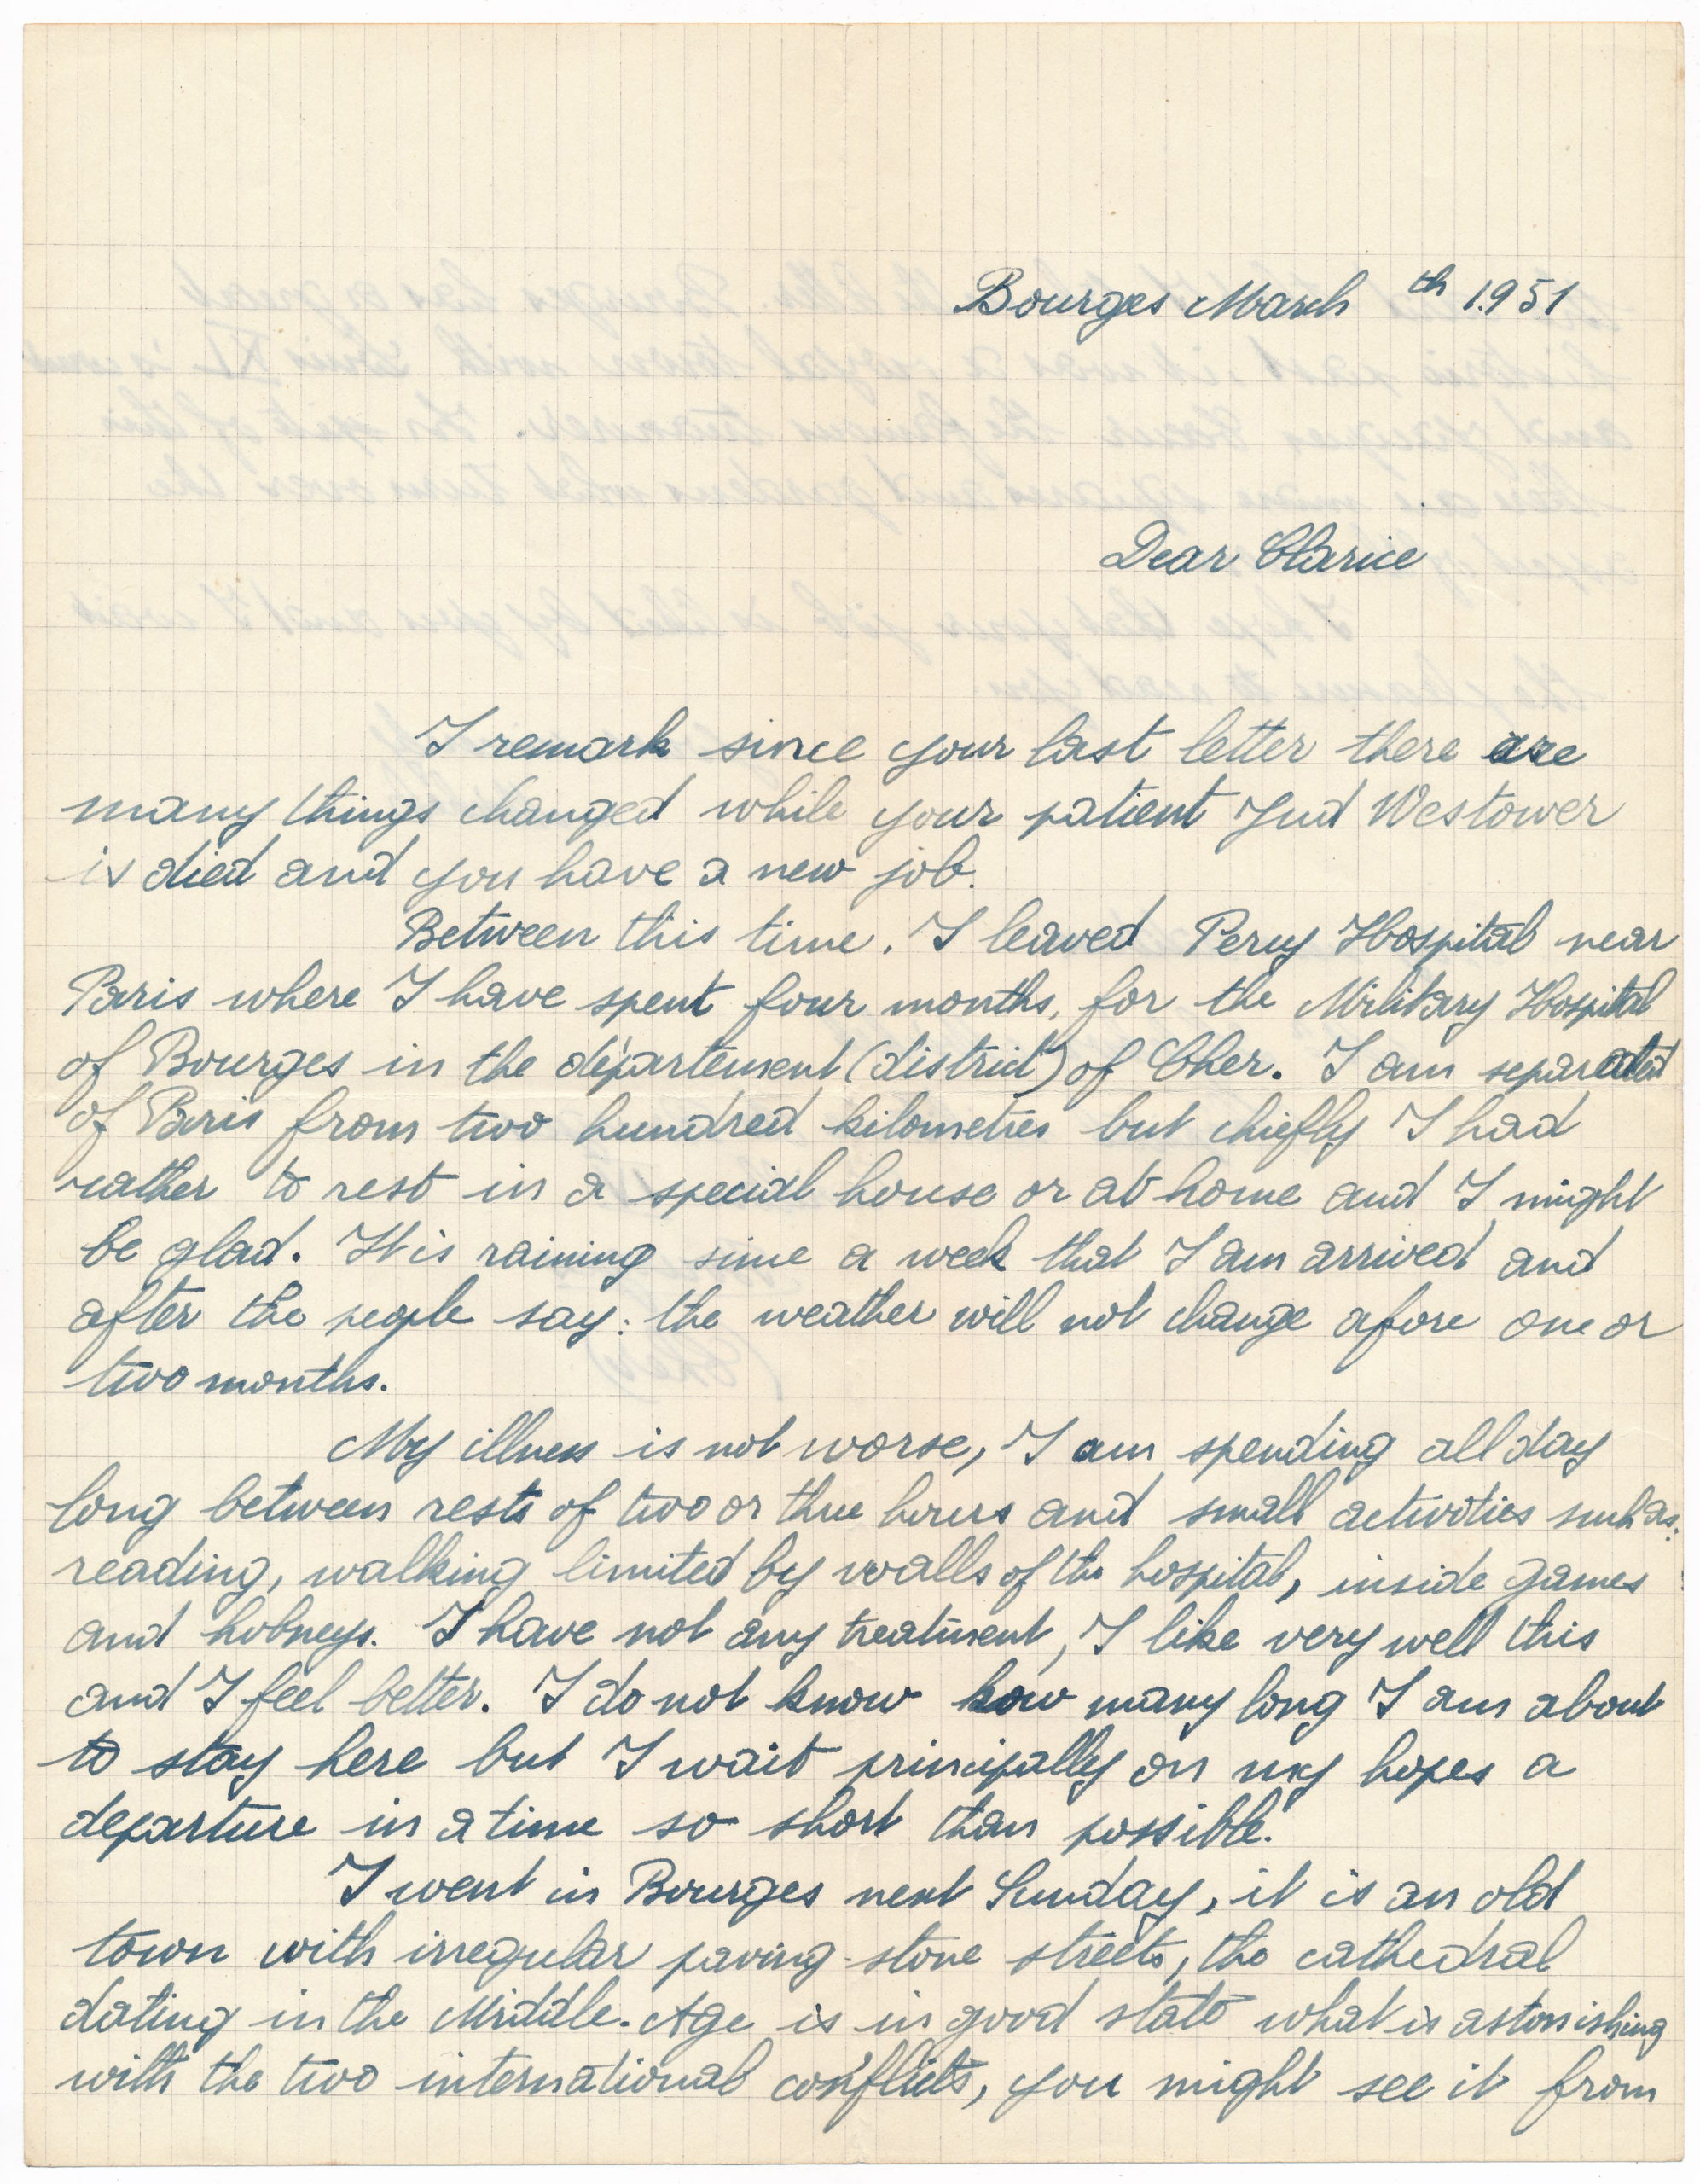 Bourges March th 1.951
Dear Clarice
I remark since your last letter there are
many things changed while your patient Jud Westower
is died and you have a new job.
Between this time. I leaved Percy Hospital near
Paris where I have spent four months, for the Military Hospital
of Bourges in the département (district) of Cher. I am separated
of Paris from two hundred kilometres but chiefly I had
rather to rest in a special house or at home and I might
be glad. It is raining since a week that I am arrived and
after the people say: the weather will not change afore one or
two months.
My illness is not worse, I am spending all day
long between rests of two or three hours and small activities such as:
reading, walking limited by walls of the hospital, inside games
and . I have not any treatment, I like very well this
and I feel better. I do not know how many long I am about
to stay here but I wait principally on my hopes a
departure in a time so short than possible.
I went in Bourges next Sunday, it is an old
town with irregular paving-stone streets, the cathedral
dating in the Middle-Age is in good state what is astonishing
with the two international conflicts, you might see it from